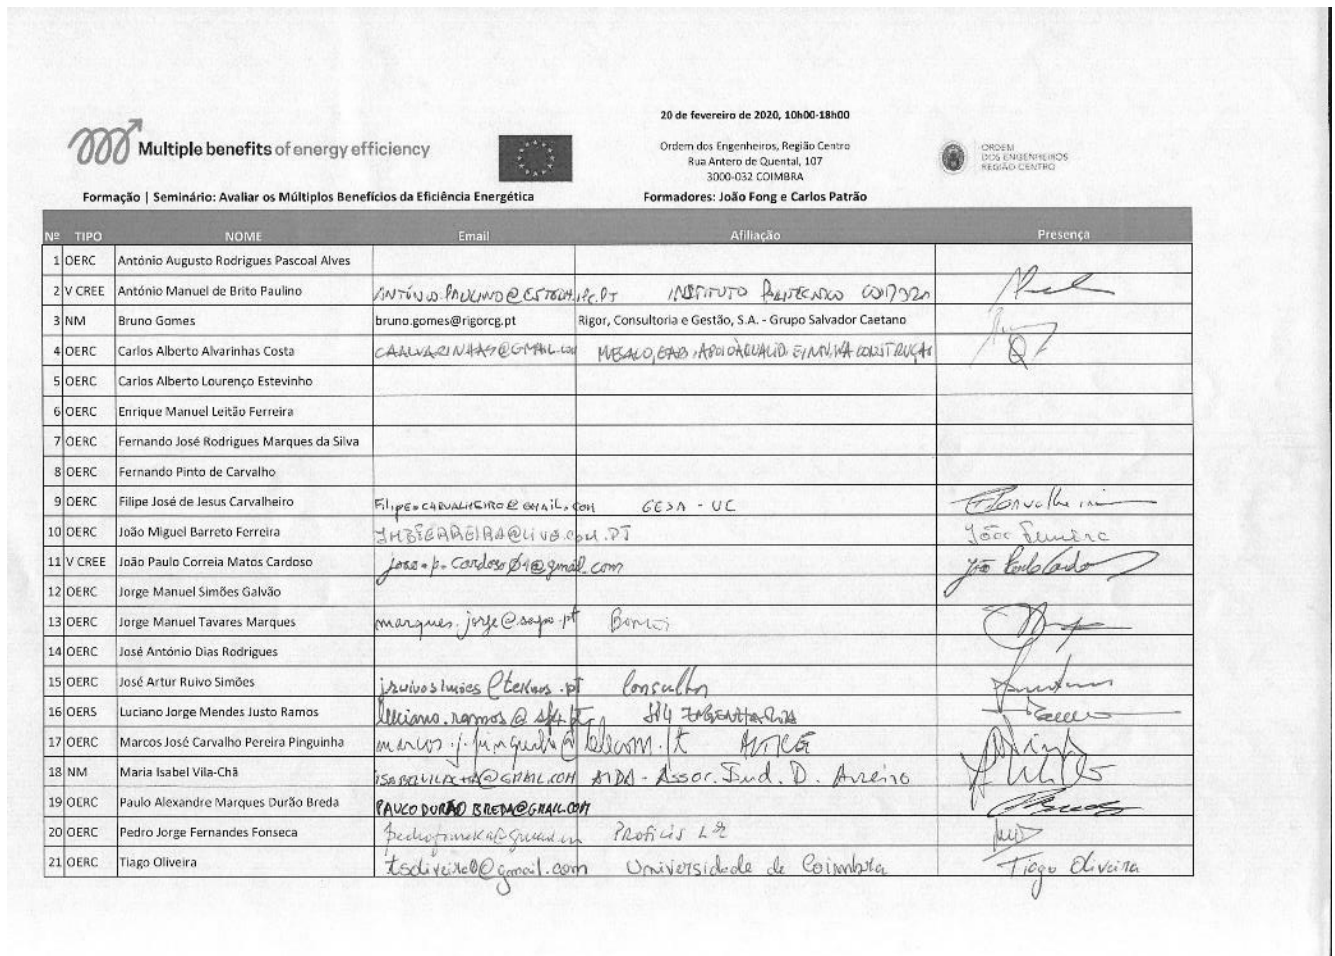 20 de fevereiro de 2020, 10h00-18h00
Multiple benefits of energy efficiency
Ordem dos Engenheiros, Região Centro
Rua Antero de Quental, 107
3000-032 COIMBRA
ORDEM
DOS ENGENHEIROS
REGIÃO CENTRO
Formação | Seminário: Avaliar os Múltiplos Benefícios da Eficiência Energética Formadores: João Fong e Carlos Patrão
Nº TIPO NOME Email Afiliação Presença
1 OERC António Augusto Rodrigues Pascoal Alves
2 V CREE António Manuel de Brito Paulino INSTITUTO POLITÉCNICO
3 NM Bruno Gomes bruno.gomes@rigorcg.pt Rigor, Consultoria e Gestão, S.A. - Grupo Salvador Caetano
4 OERC Carlos Alberto Alvarinhas Costa CAALVARINHAS@GMAIL.COM
5 OERC Carlos Alberto Lourenço Estevinho
6 OERC Enrique Manuel Leitão Ferreira
7 OERC Fernando José Rodrigues Marques da Silva
8 OERC Fernando Pinto de Carvalho
9 OERC Filipe José de Jesus Carvalheiro FILIPE.CARVALHEIRO@GMAIL.COM - UC
10 OERC João Miguel Barreto Ferreira JMBFERREIRA@LIVE.COM.PT João Ferreira
11 V CREE João Paulo Correia Matos Cardoso joao.p.cardoso04@gmail.com João Paulo Cardoso
12 OERC Jorge Manuel Simões Galvão
13 OERC Jorge Manuel Tavares Marques marques.jorge@sapo.pt
14 OERC José António Dias Rodrigues
15 OERC José Artur Ruivo Simões Consultor
16 OERS Luciano Jorge Mendes Justo Ramos ENGENHARIA
17 OERC Marcos José Carvalho Pereira Pinguinha
18 NM Maria Isabel Vila-Chã ISABELVILACHA@GMAIL.COM AIDA - Assoc. Ind. D. Aveiro
19 OERC Paulo Alexandre Marques Durão Breda PAULODURAOBREDA@GMAIL.COM
20 OERC Pedro Jorge Fernandes Fonseca
21 OERC Tiago Oliveira Universidade de Coimbra Tiago Oliveira